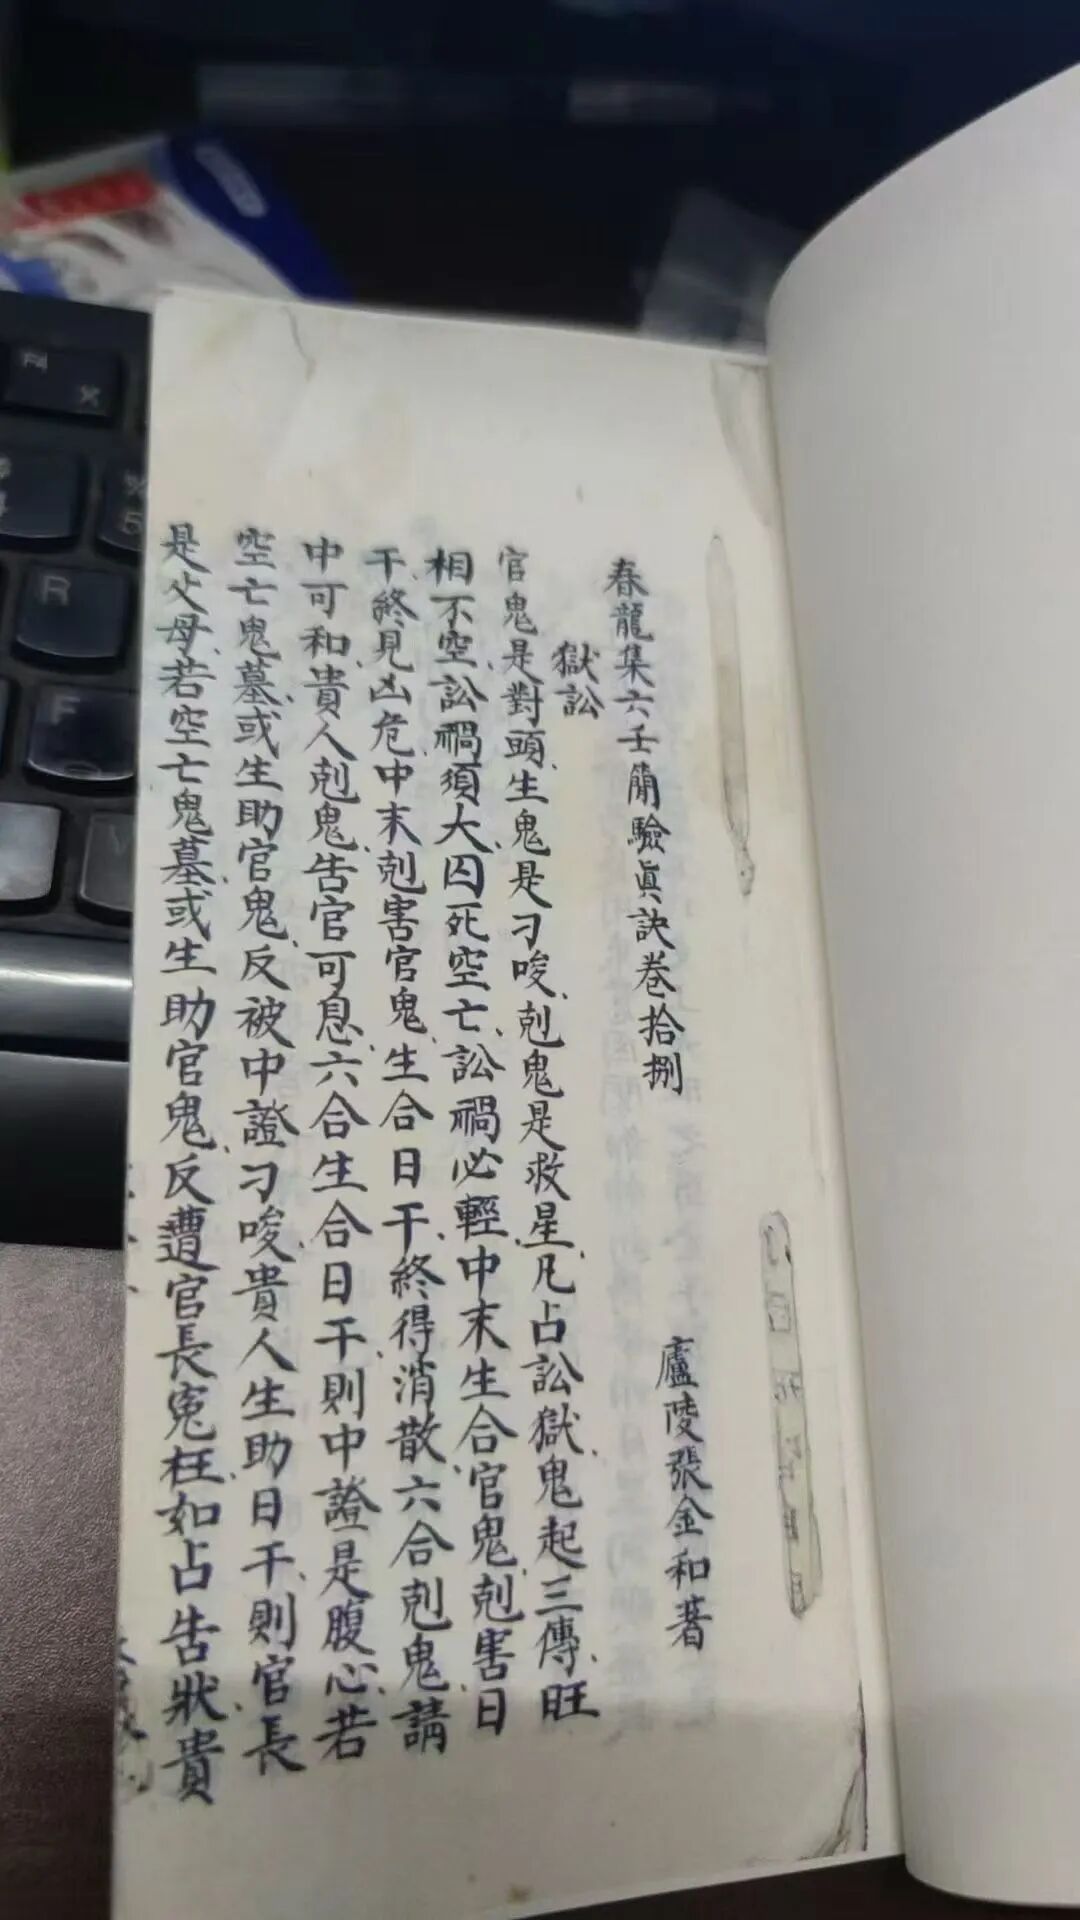 春龍集六壬簡驗眞訣卷拾捌
廬陵張金和著
獄訟
官鬼是對頭、生鬼是刁唆、剋鬼是救星、凡占訟獄、鬼起三傳、旺
相不空、訟禍須大、囚死空亡、訟禍必輕、中末生合官鬼、剋害日
干、終見凶危、中末剋害官鬼、生合日干、終得消散、六合剋鬼、請
中可和、貴人剋鬼、告官可息、六合生合日干則中證是腹心、若
空亡鬼墓、或生助官鬼、反被中證刁唆、貴人生助日干、則官長
是父母、若空亡鬼墓、或生助官鬼、反遭官長寃枉、如占告狀、貴
F4
R
F
5